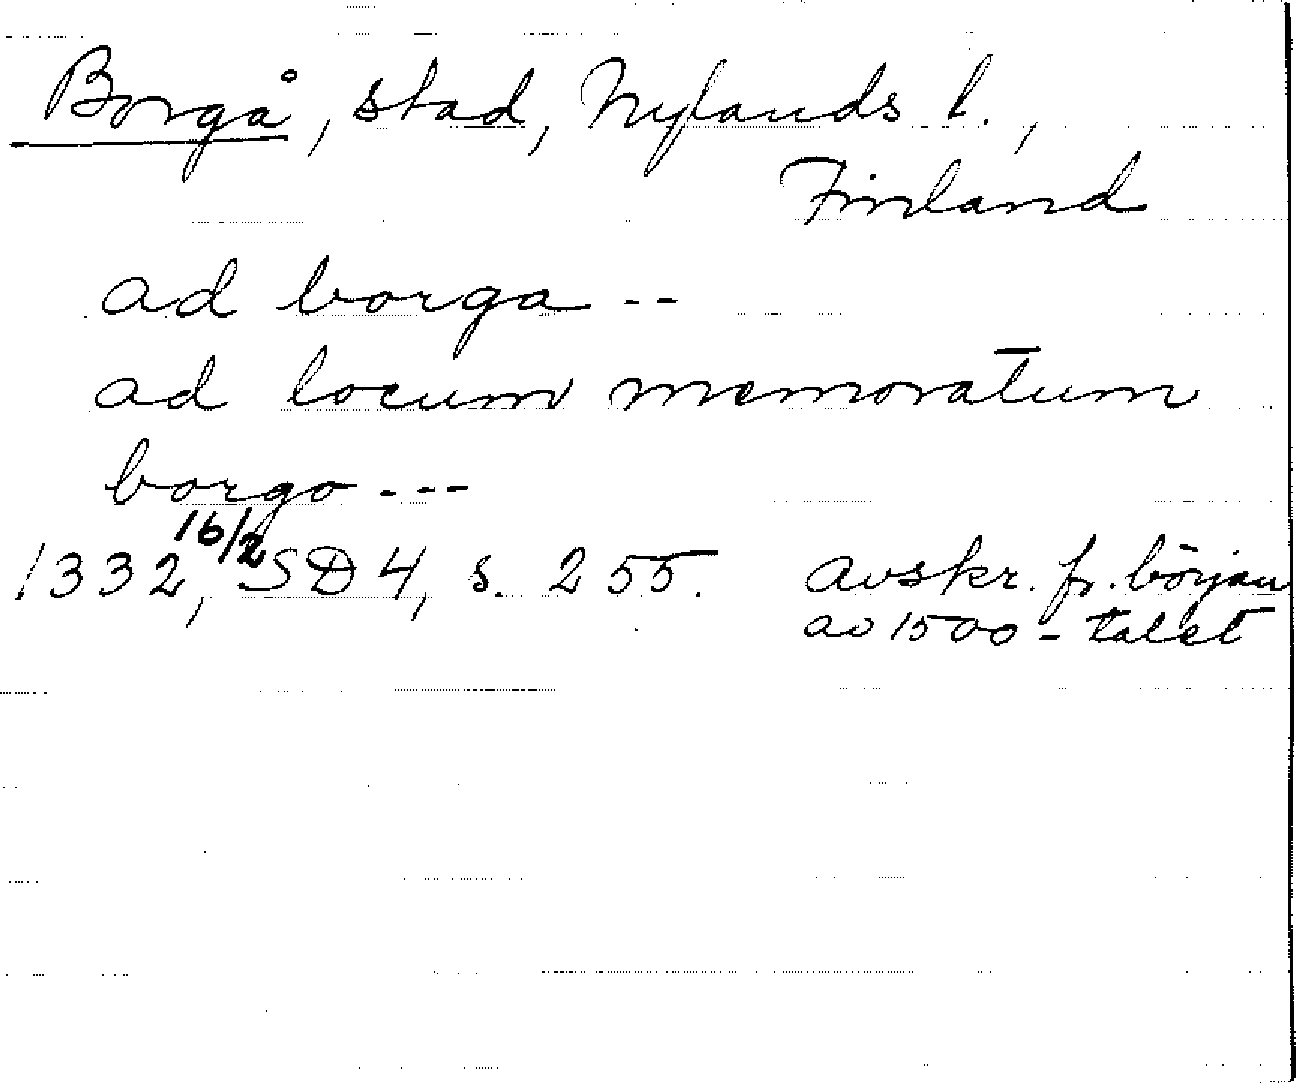 Borgå, stad, Nylands l.,
Finland
ad borga --
ad locum memoratum
borgo ---
1332, 16/2 SD 4, s. 255. avskr. fr. början
av 1500-talet